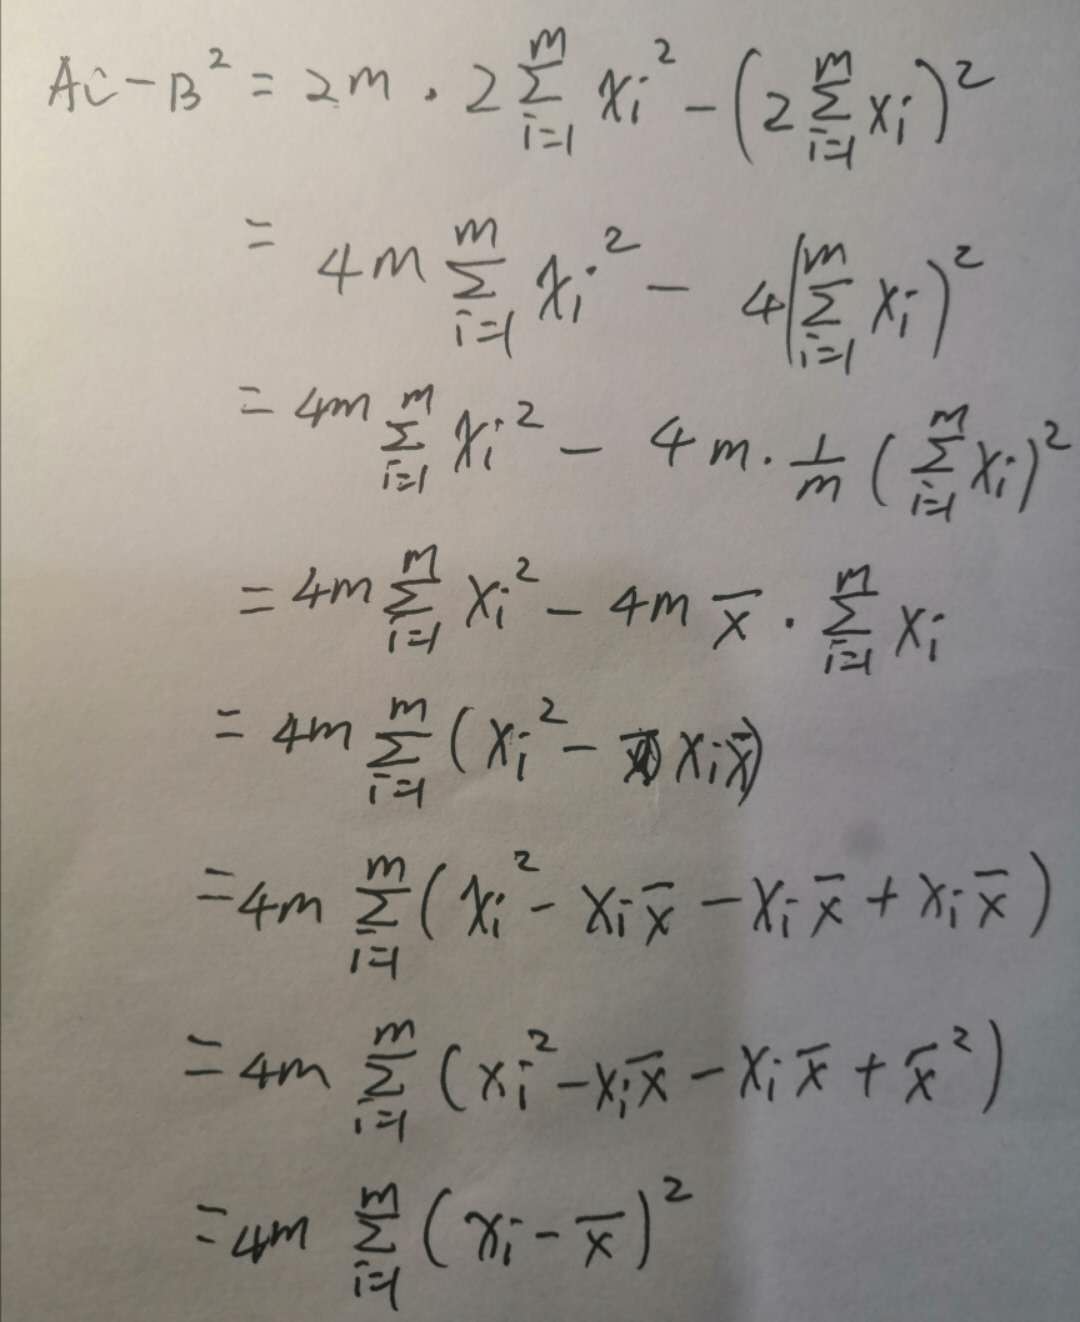 AC - B² = 2m · 2 ∑_{i=1}^{m} x_i² - (2 ∑_{i=1}^{m} x_i)²
= 4m ∑_{i=1}^{m} x_i² - 4(∑_{i=1}^{m} x_i)²
= 4m ∑_{i=1}^{m} x_i² - 4m · \frac{1}{m} (∑_{i=1}^{m} x_i)²
= 4m ∑_{i=1}^{m} x_i² - 4m \overline{x} · ∑_{i=1}^{m} x_i
= 4m ∑_{i=1}^{m} (x_i² - x_i \overline{x})
= 4m ∑_{i=1}^{m} (x_i² - x_i \overline{x} - x_i \overline{x} + x_i \overline{x})
= 4m ∑_{i=1}^{m} (x_i² - x_i \overline{x} - x_i \overline{x} + \overline{x}²)
= 4m ∑_{i=1}^{m} (x_i - \overline{x})²